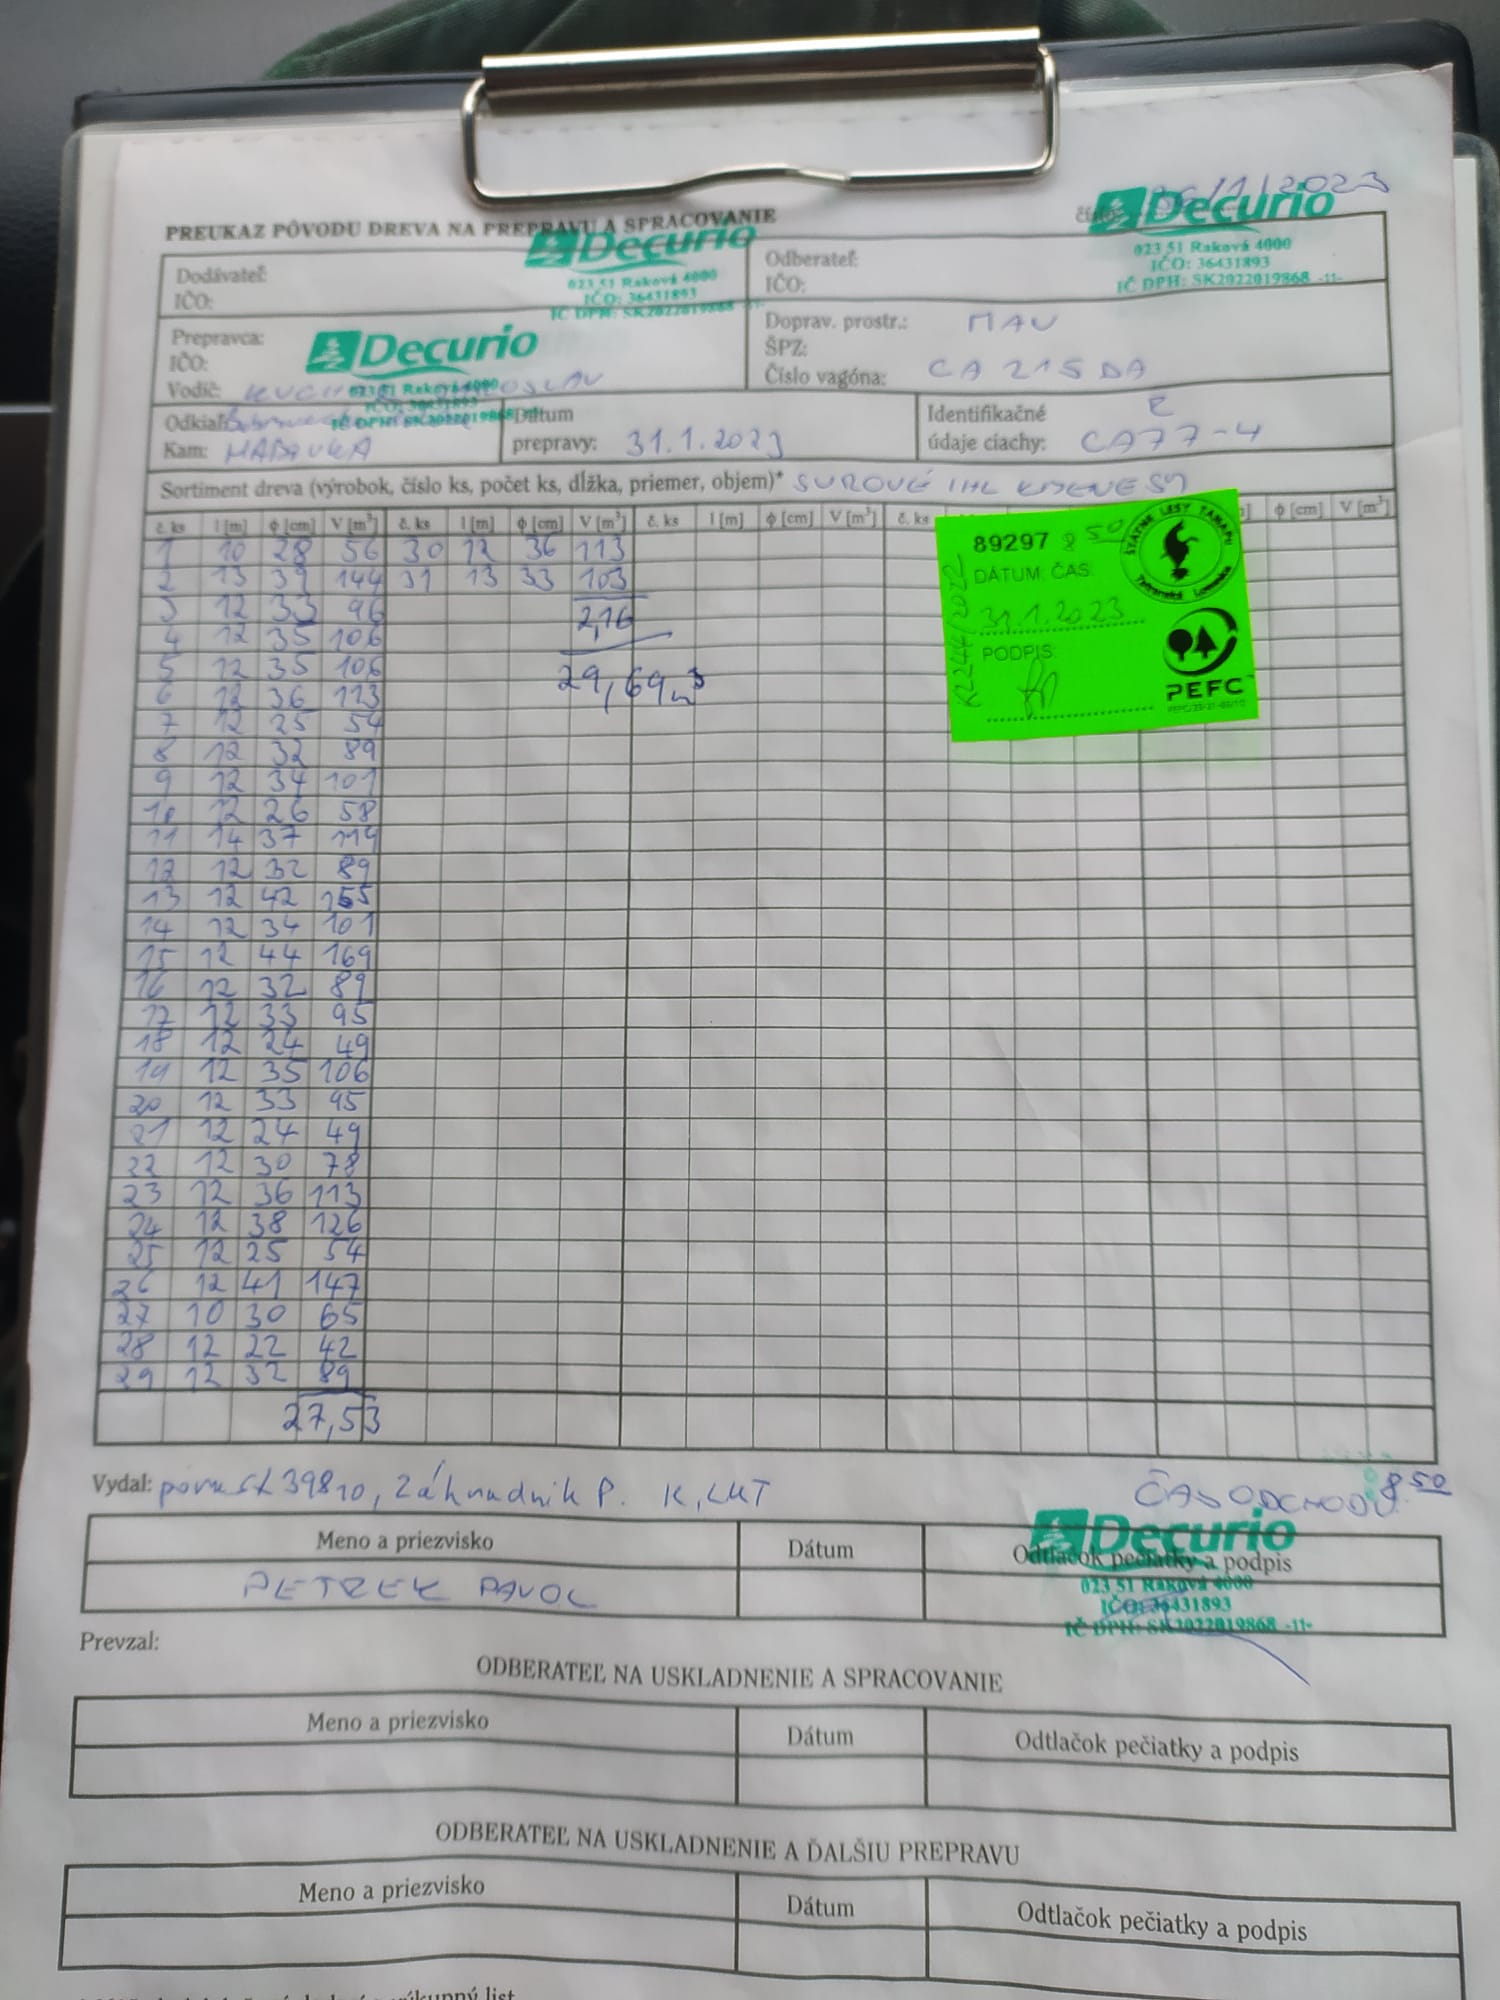 26/1/2023
PREUKAZ PÔVODU DREVA NA PREPRAVU A SPRACOVANIE
Decurio
023 51 Raková 4000
IČO: 36431893
IČ DPH: SK2022019868 -11-
Decurio
023 51 Raková 4000
IČO: 36431893
IČ DPH: SK2022019868 -11-
Dodávateľ:
IČO:
Odberateľ:
IČO:
Prepravca:
IČO:
Vodič:
Decurio
023 51 Raková 4000
IČO: 36431893
IČ DPH: SK2022019868
Doprav. prostr.: MAN
ŠPZ:
Číslo vagóna: CA 215 DA
Odkiaľ:
Kam:
Dátum
prepravy: 31.1.2023
Identifikačné
údaje ciachy: CA77-4
Sortiment dreva (výrobok, číslo ks, počet ks, dĺžka, priemer, objem)* SUROVÉ IHL KMENE
č. ks l [m] ϕ [cm] V [m³] č. ks l [m] ϕ [cm] V [m³] č. ks l [m] ϕ [cm] V [m³] č. ks ϕ [cm] V [m³]
1 10 28 56 30 12 36 113
2 13 39 144 31 13 33 103
3 12 33 96 2,16
4 12 35 106
5 12 35 106 29,69 m³
6 12 36 113
7 12 25 54
8 12 32 89
9 12 34 101
10 12 26 58
11 14 37 114
12 12 32 89
13 12 42 155
14 12 34 101
15 12 44 169
16 12 32 89
17 12 33 95
18 12 24 49
19 12 35 106
20 12 33 95
21 12 24 49
22 12 30 78
23 12 36 113
24 12 38 126
25 12 25 54
26 12 41 147
27 10 30 65
28 12 22 42
29 12 32 89
27,53
89297 8 50
DÁTUM: ČAS:
31.1.2023
PODPIS:
ŠTÁTNE LESY TANAPU
Tatranská Lomnica
PEFC
Vydal: 39810, Záhradník P. K, LMT
ČAS ODCHODU 8 50
Meno a priezvisko Dátum Odtlačok pečiatky a podpis
PETREK PAVOL
Decurio
023 51 Raková 4000
IČO: 36431893
IČ DPH: SK2022019868 -11-
Prevzal:
ODBERATEĽ NA USKLADNENIE A SPRACOVANIE
Meno a priezvisko Dátum Odtlačok pečiatky a podpis
ODBERATEĽ NA USKLADNENIE A ĎALŠIU PREPRAVU
Meno a priezvisko Dátum Odtlačok pečiatky a podpis